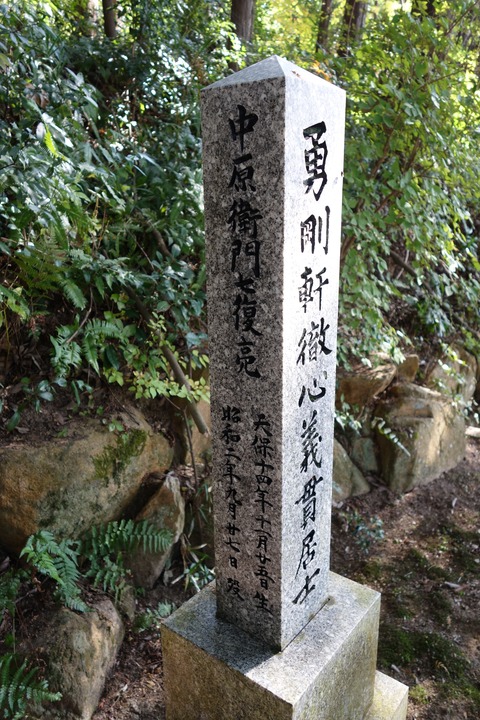 勇剛軒徹心義貫居士
中原衛門七復亮
天保十四年十一月廿一日生
昭和二年九月廿七日歿